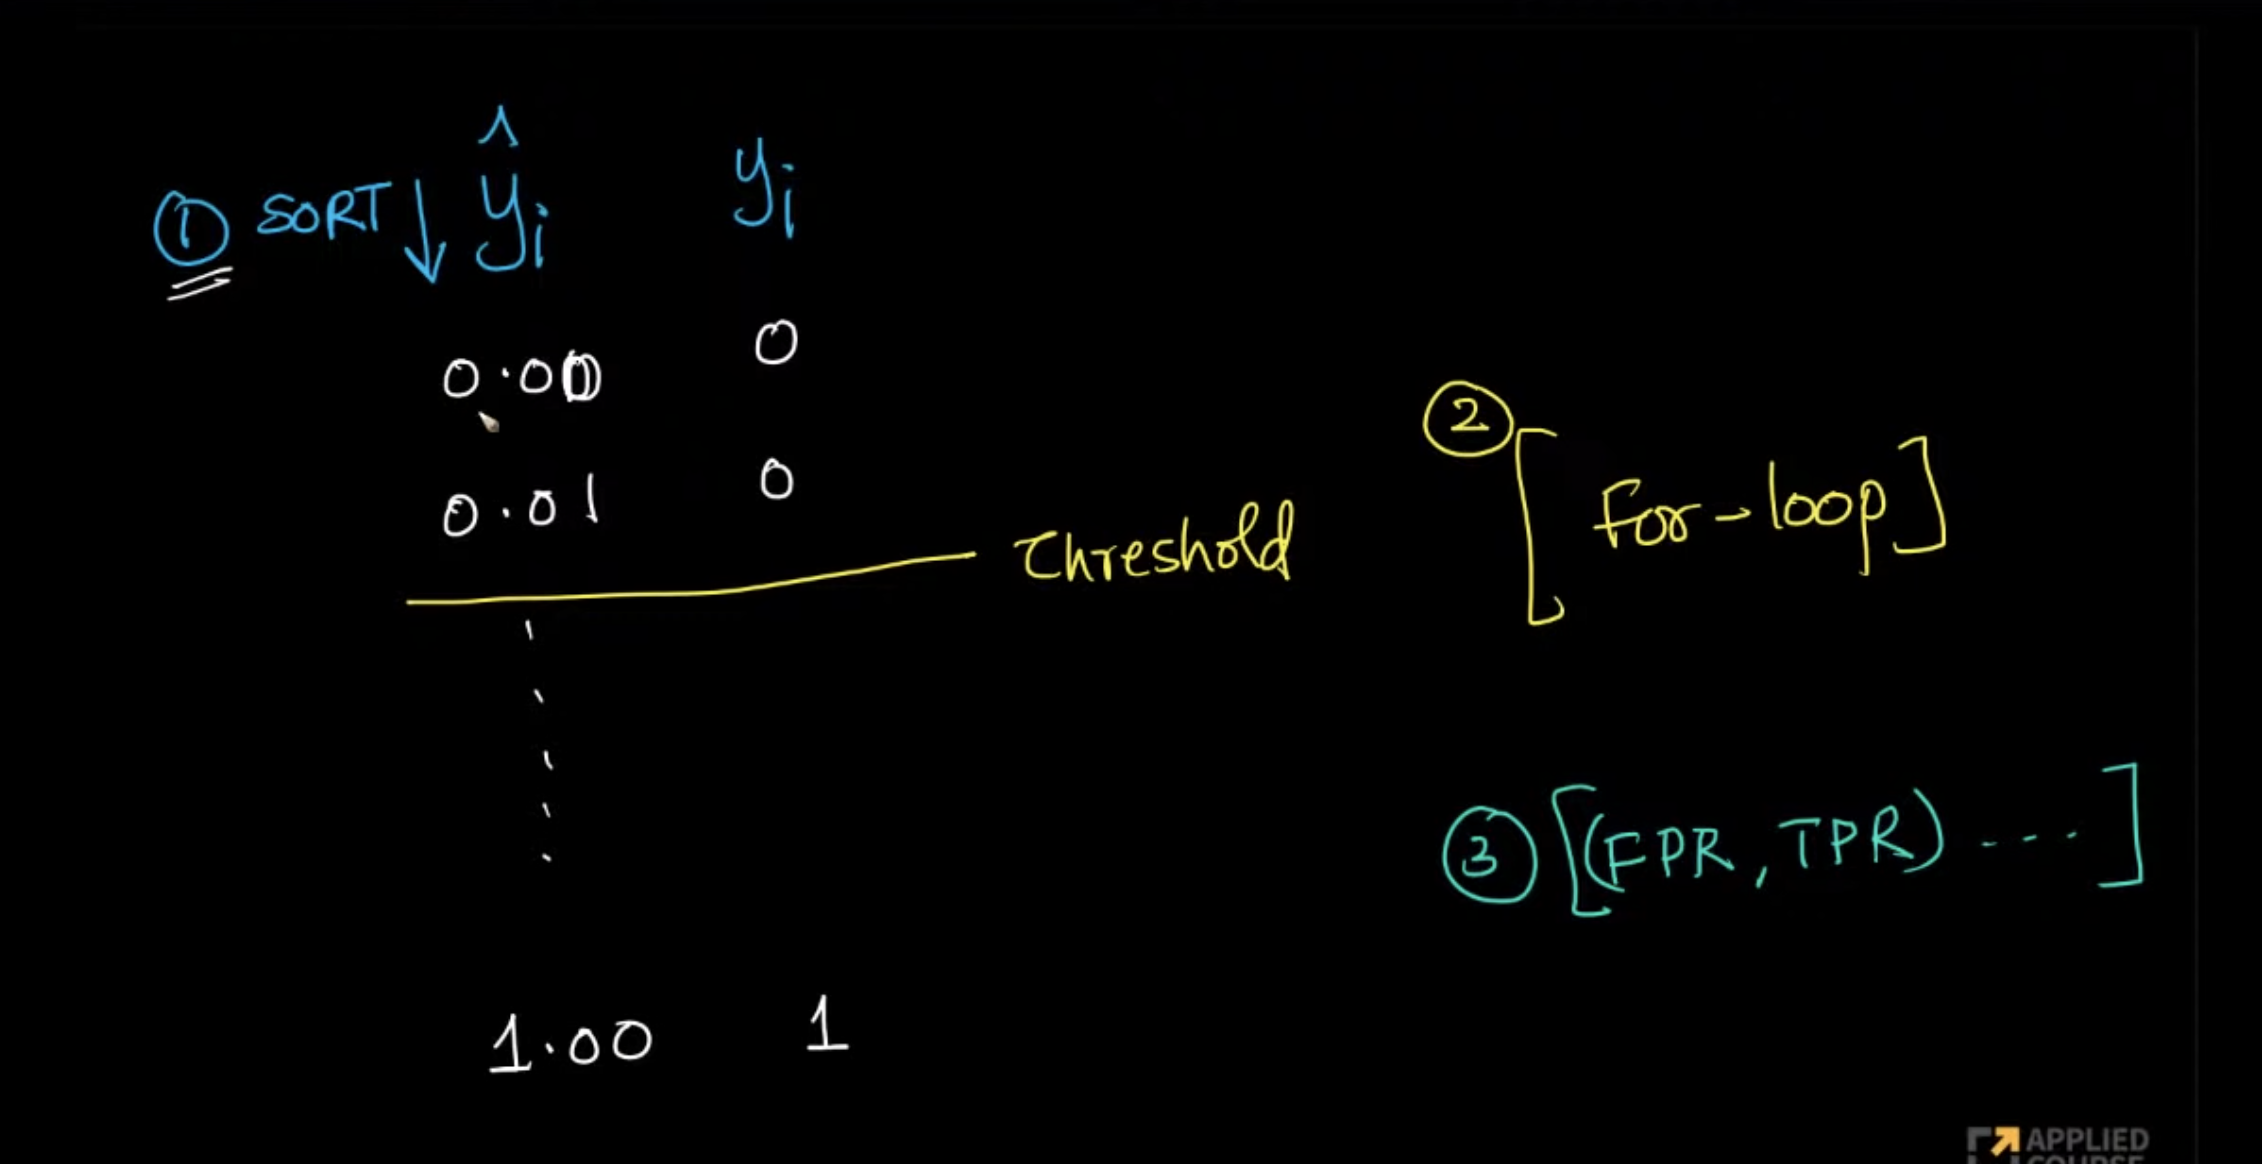 ① SORT ↓ ŷi yi
0.00 0
0.01 0
Threshold
② [ For-loop ]
③ [(FPR, TPR) ---]
1.00 1
APPLIED
COURSE